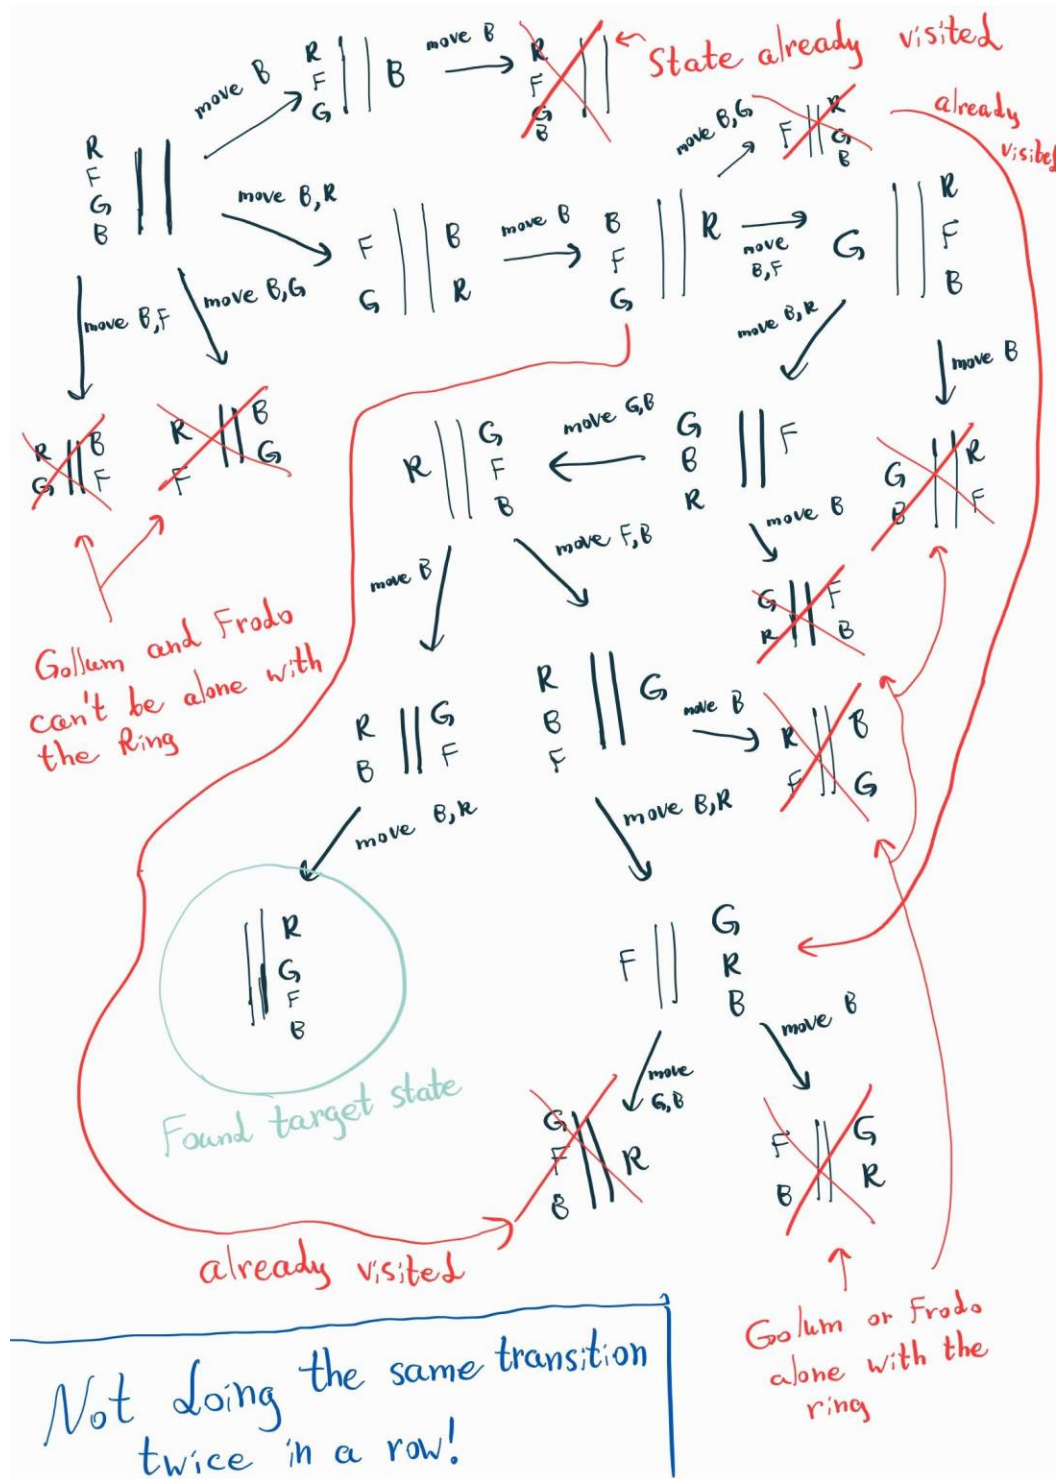 R
F
G
B
move B
R
F
G
B
move B
R
F
G
B
State already visited
move B,R
F
G
B
R
move B
B
F
G
R
move B,G
F
R
G
B
already
visited
move
B,F
G
R
F
B
move B,F
move B,G
R
G
B
F
R
F
B
G
Gollum and Frodo
can't be alone with
the Ring
move B,R
move B
G
B
R
F
G
B
R
F
move G,B
R
G
F
B
move B
G
R
F
B
move B
move F,B
R
B
G
F
R
B
F
G
move B
R
F
B
G
move B,R
R
G
F
B
Found target state
move B,R
F
G
R
B
move
G,B
G
F
B
R
move B
F
B
G
R
already visited
Golum or Frodo
alone with the
ring
Not doing the same transition
twice in a row!